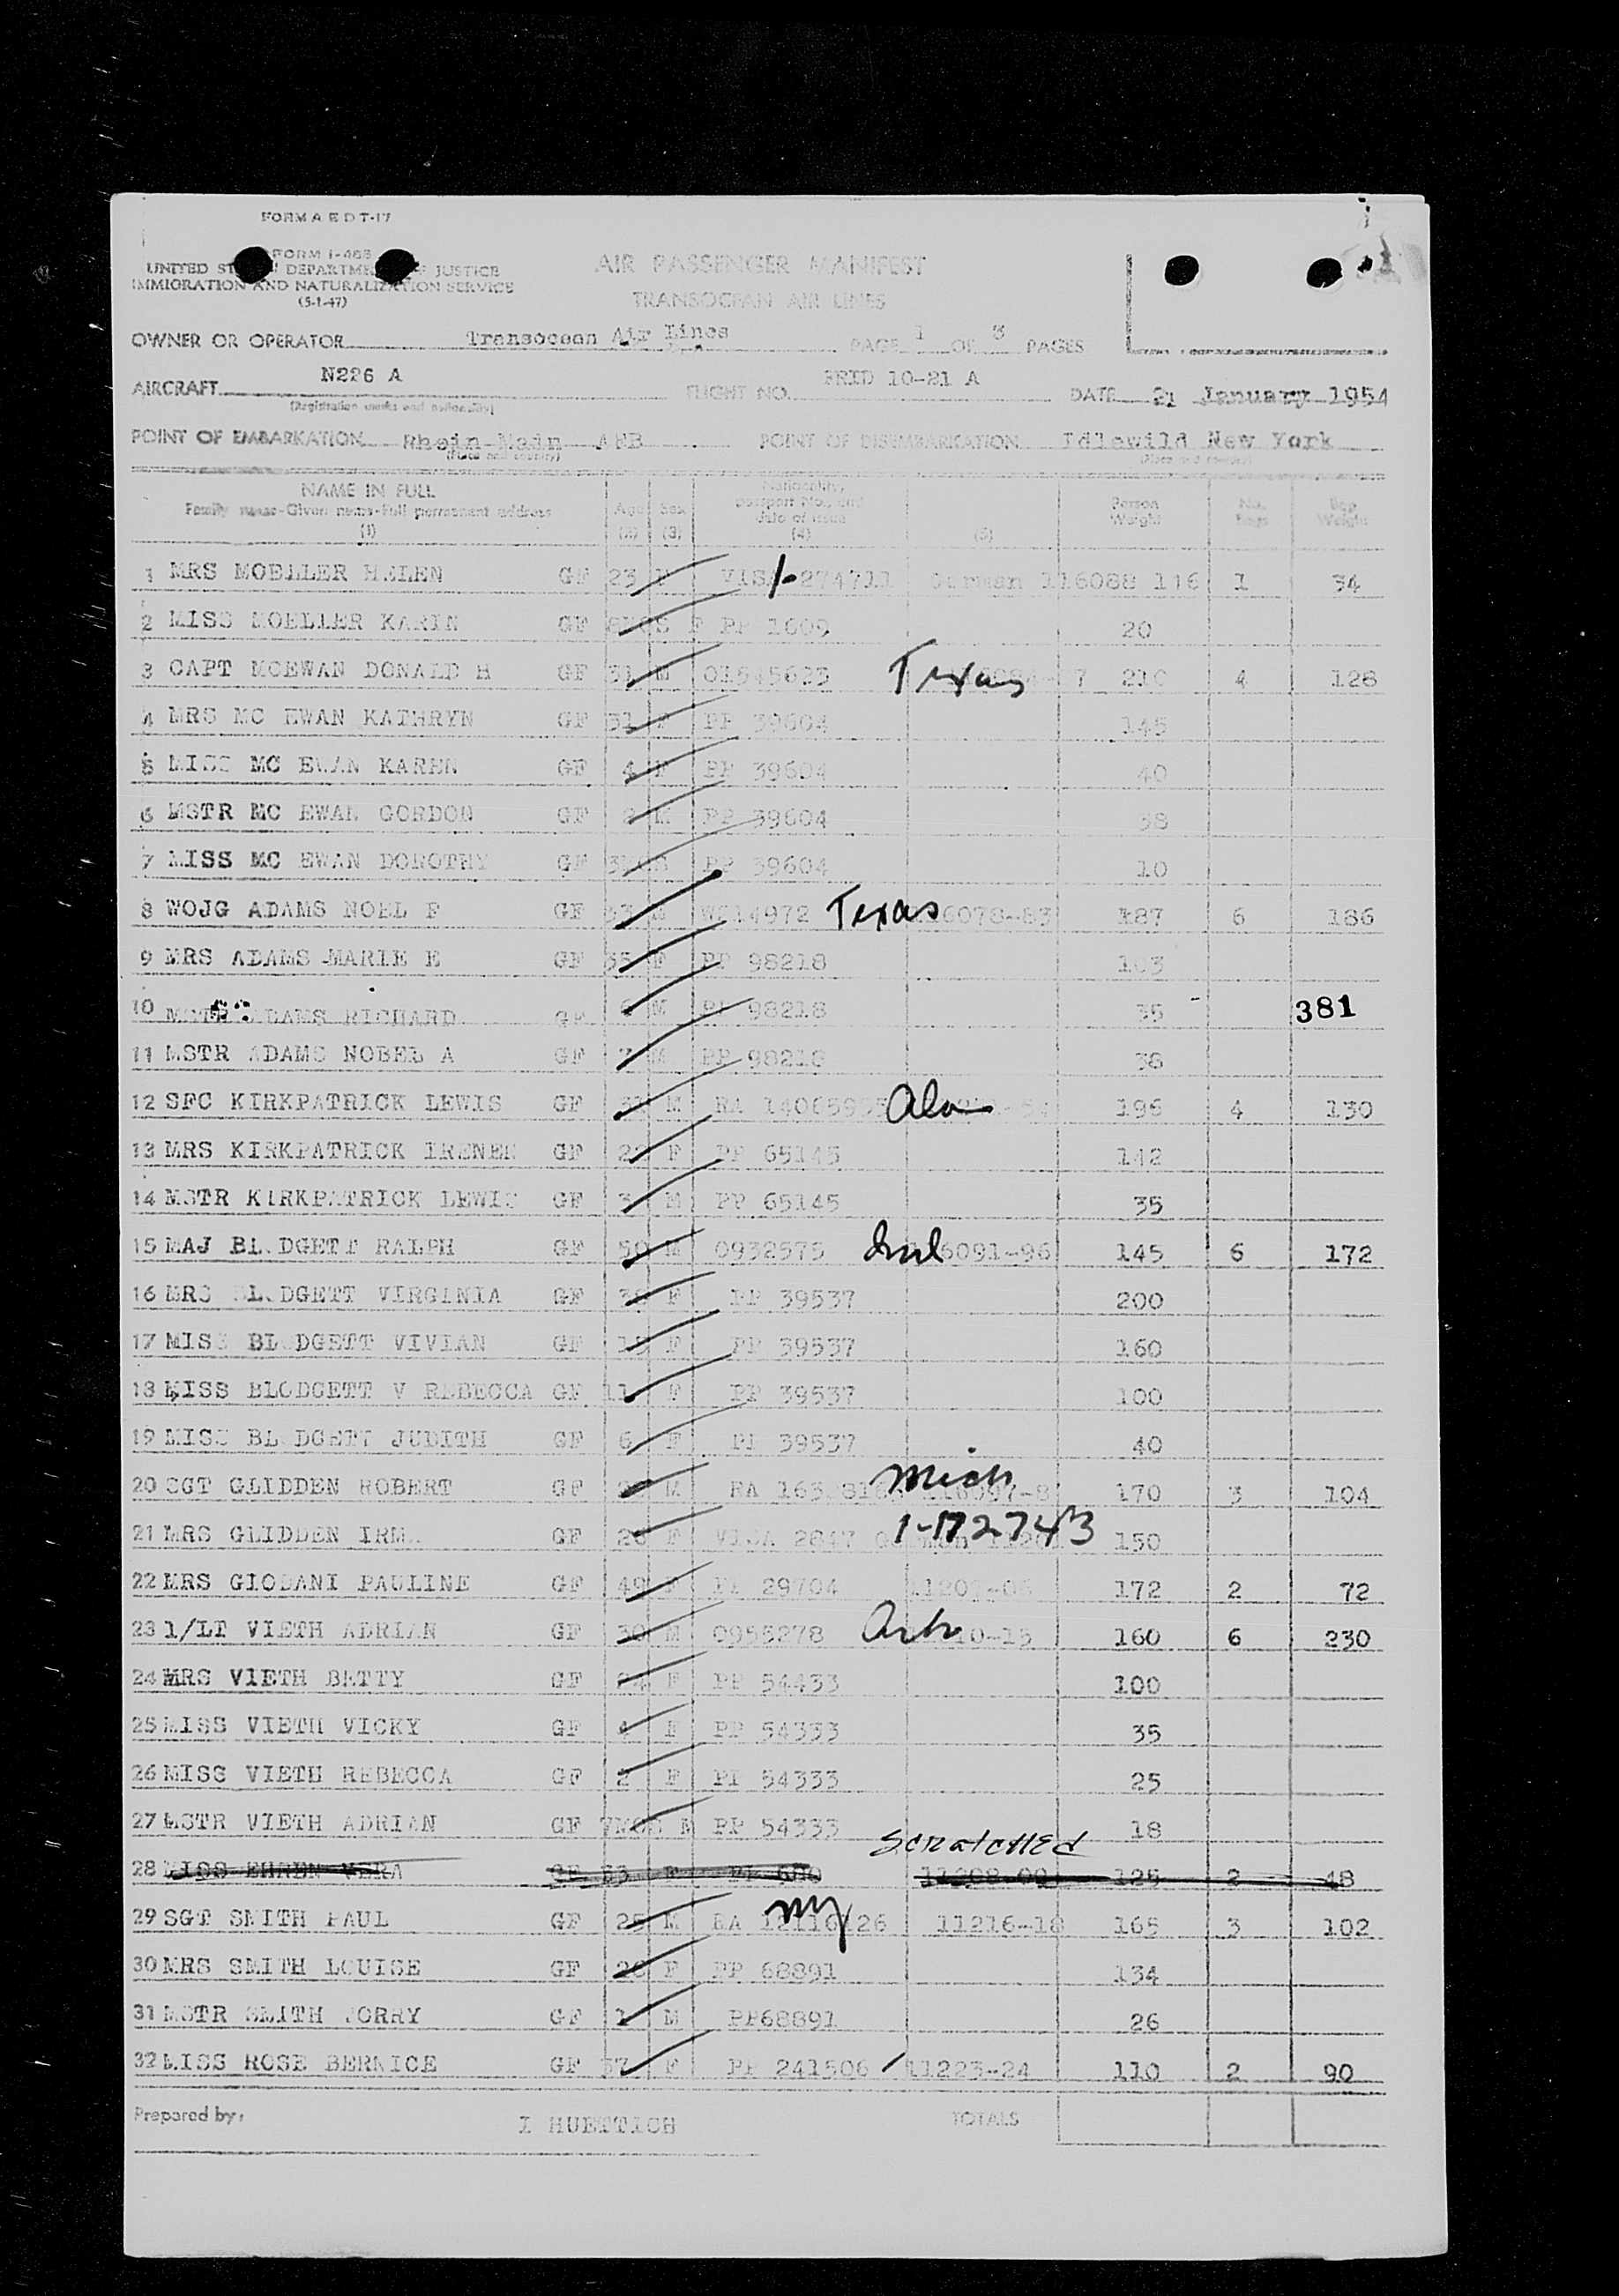 FORM A E D T-17
FORM I-466
UNITED ST DEPARTME JUSTICE
IMMIGRATION AND NATURALIZATION SERVICE
(5-1-47)
AIR PASSENGER MANIFEST
TRANSOCEAN AIR LINES
OWNER OR OPERATOR Transocean Air Lines PAGE 1 OF 3 PAGES
AIRCRAFT N226 A FLIGHT NO. 10-21 A DATE 21 January 1954
(Registration marks and nationality)
POINT OF EMBARKATION Rhein-Main AFB POINT OF DISEMBARKATION Idlewild New York
(Place and country) (Place and country)
NAME IN FULL Age Sex Nationality, passport No., and date of issue Person Weight No. Bags Bag Weight
Family name-Given name-Full permanent address
(1) (2) (3) (4) (5)
1 MRS MOELLER HELEN GF 23 F VISA 274711 German 116088 116 1 34
2 MISS MOELLER KARIN GF F PP 1609 20
3 CAPT MCEWAN DONALD H GF 31 M 01545623 Texas 7 210 4 128
4 MRS MC EWAN KATHRYN GF 31 F PP 39604 145
5 MISS MC EWAN KAREN GF 4 F PP 39604 40
6 MSTR MC EWAN GORDON GF 2 M PP 39604 38
7 MISS MC EWAN DOROTHY GF PP 39604 10
8 WOJG ADAMS NOEL F GF M W214972 Texas 6078-83 187 6 186
9 MRS ADAMS MARIE E GF 35 F PP 98218 103
10 ADAMS RICHARD GF 6 M PP 98218 35 381
11 MSTR ADAMS NOBEL A GF 7 M PP 98218 38
12 SFC KIRKPATRICK LEWIS GF 31 M RA Ala 196 4 130
13 MRS KIRKPATRICK IRENEE GF 22 F PP 65145 142
14 MSTR KIRKPATRICK LEWIS GF 3 M PP 65145 35
15 MAJ BL DGETT RALPH GF 50 M 0932575 Ind 6091-96 145 6 172
16 MRS BLODGETT VIRGINIA GF F PP 39537 200
17 MISS BL DGETT VIVIAN GF 15 F PP 39537 160
18 MISS BLODGETT V REBECCA GF 11 F PP 39537 100
19 MISS BL DGETT JUDITH GF 6 F PP 39537 40
20 SGT GLIDDEN ROBERT GF M RA Mich 170 3 104
21 MRS GLIDDEN GF 26 F VISA 1-172743 150
22 MRS PAULINE GF 49 F PP 29704 172 2 72
23 1/LT VIETH ADRIAN GF 30 M 0955278 Ark 10-15 160 6 230
24 MRS VIETH BETTY GF 24 F PP 54433 100
25 MISS VIETH VICKY GF 4 F PP 54333 35
26 MISS VIETH REBECCA GF 2 F PP 54333 25
27 MSTR VIETH ADRIAN GF 7MOS M PP 54333 18
Scratched
28 MISS EHREN VERA GF F PP 11208-09 125 2 48
29 SGT SMITH PAUL GF 25 M RA NY 11216-18 165 3 102
30 MRS SMITH LOUISE GF 26 F PP 68891 134
31 MSTR SMITH GF 1 M PP68891 26
32 MISS ROSE BERNICE GF 37 F PP 241506 11223-24 110 2 90
Prepared by: I HUETTICH TOTALS